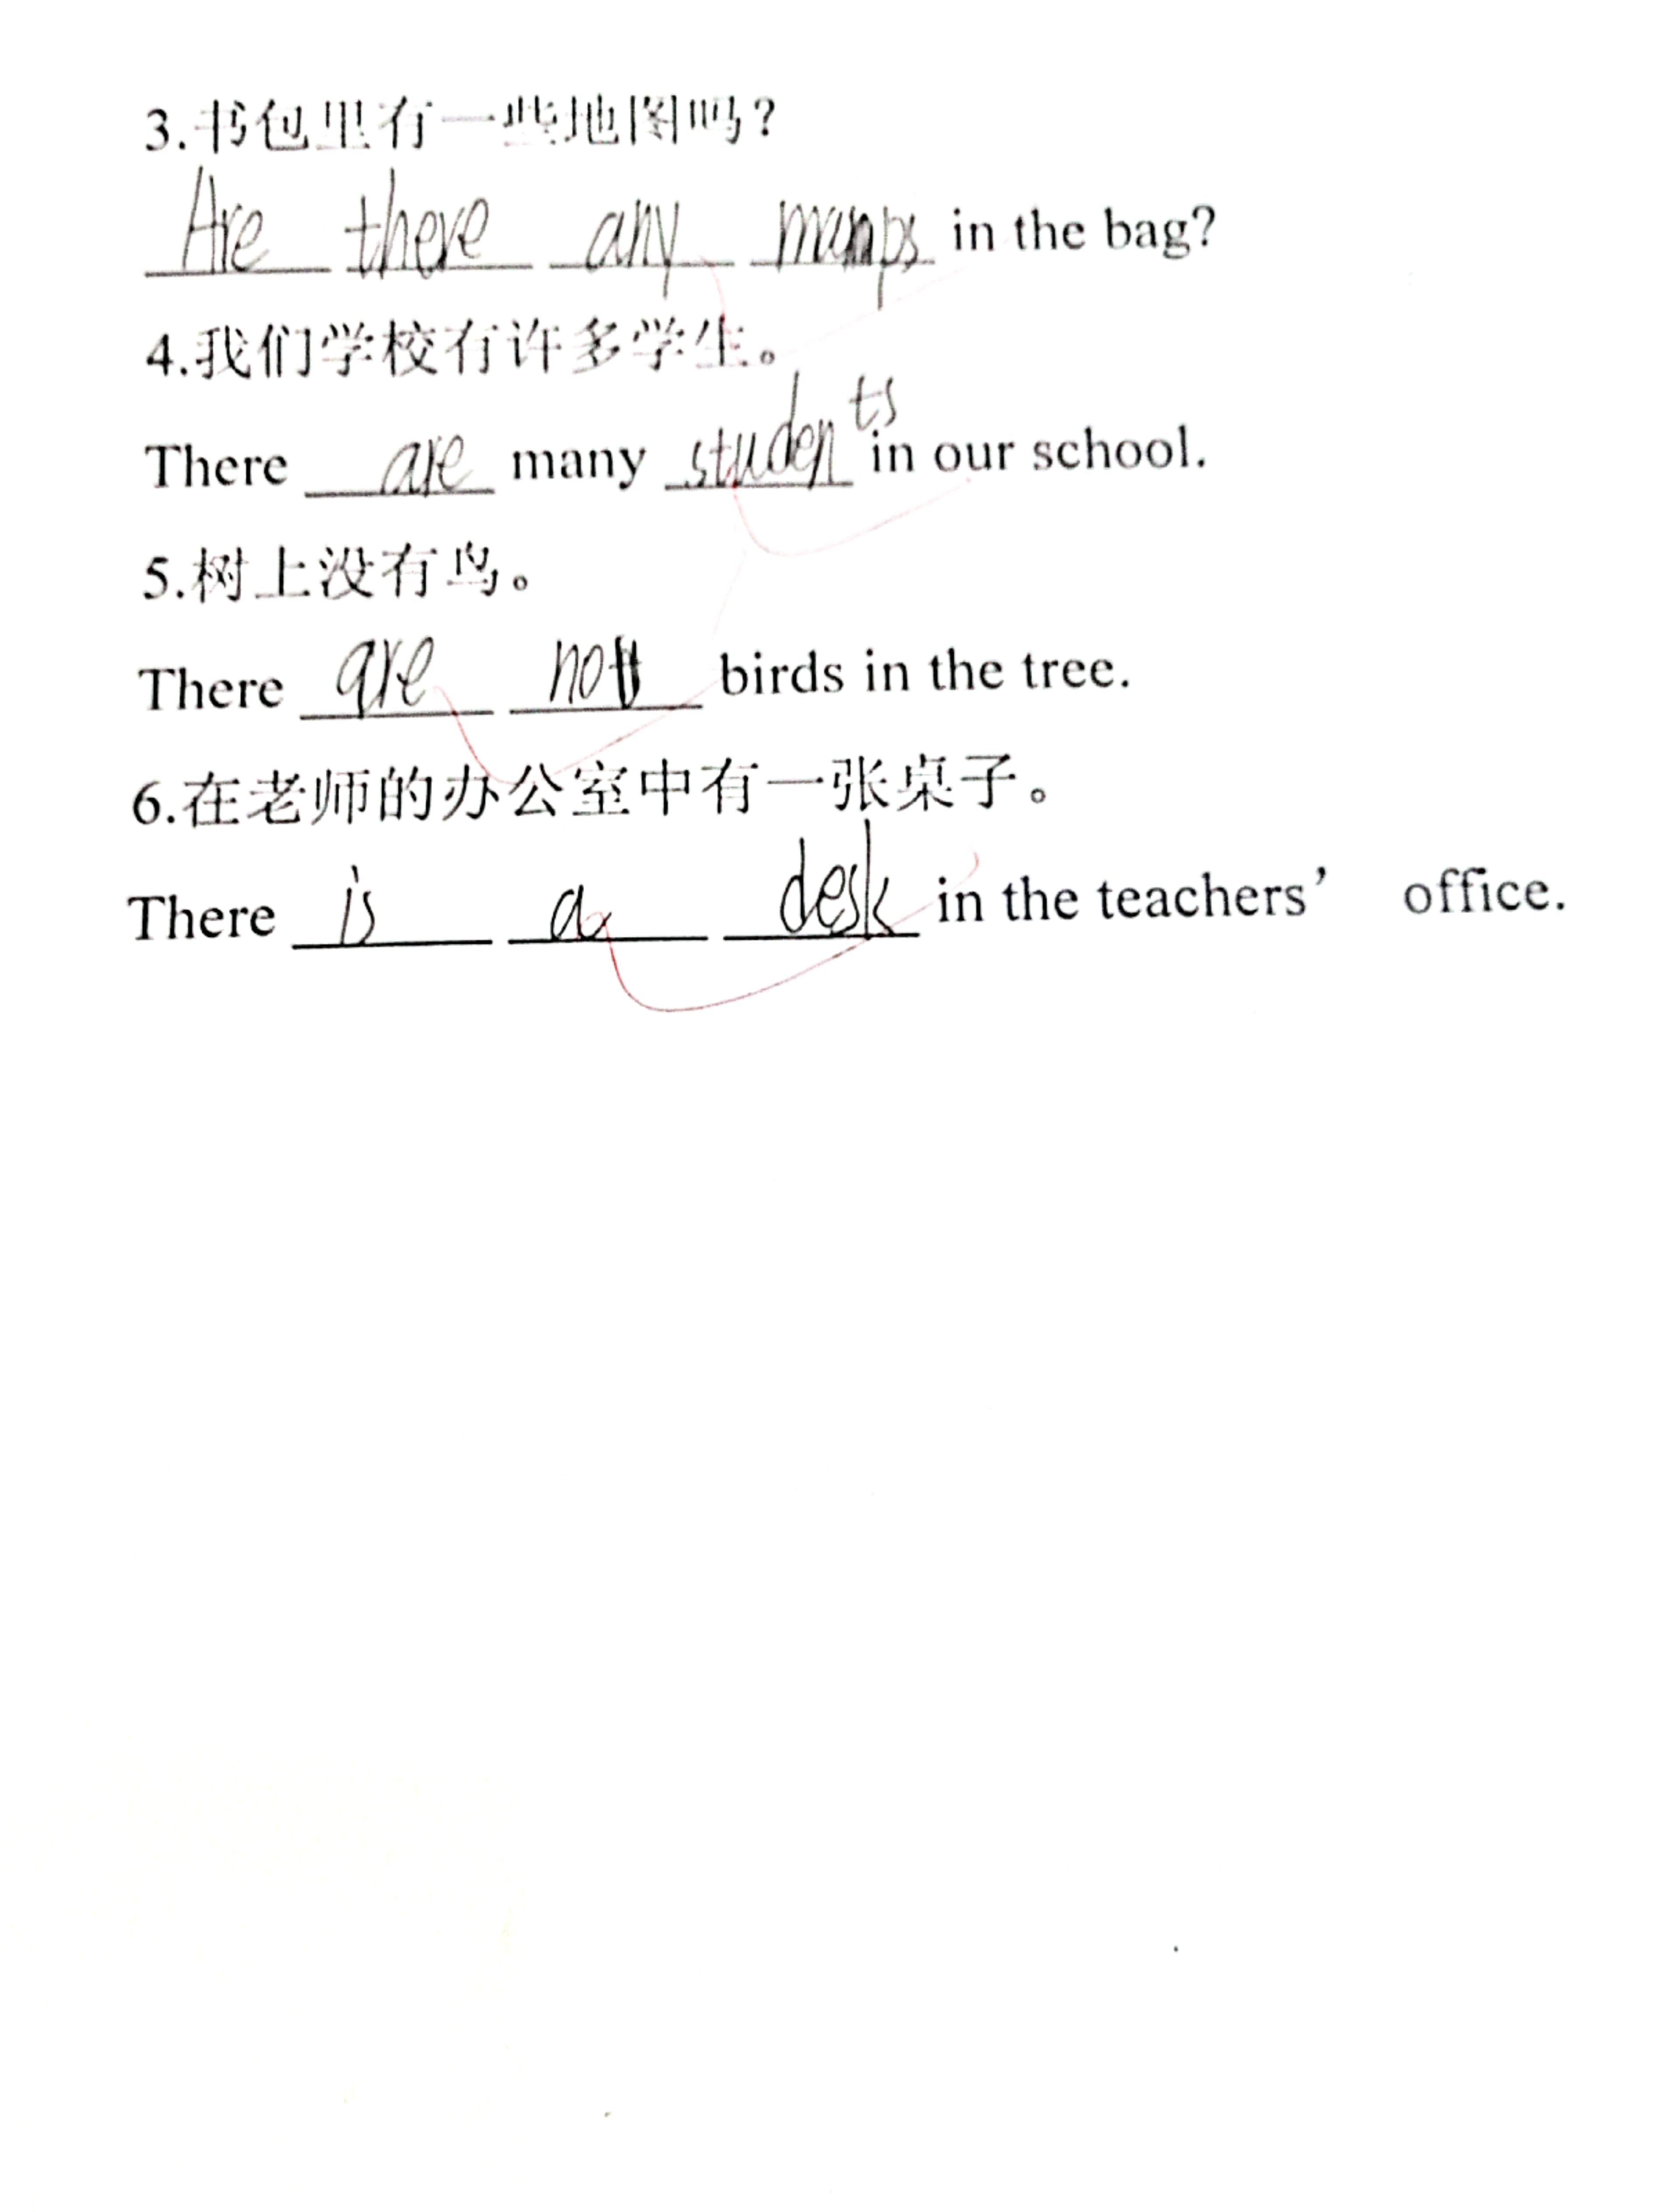 3.书包里有一些地图吗?
Are there any maps in the bag?
4.我们学校有许多学生。
There are many students in our school.
5.树上没有鸟。
There are not birds in the tree.
6.在老师的办公室中有一张桌子。
There is a desk in the teachers’ office.